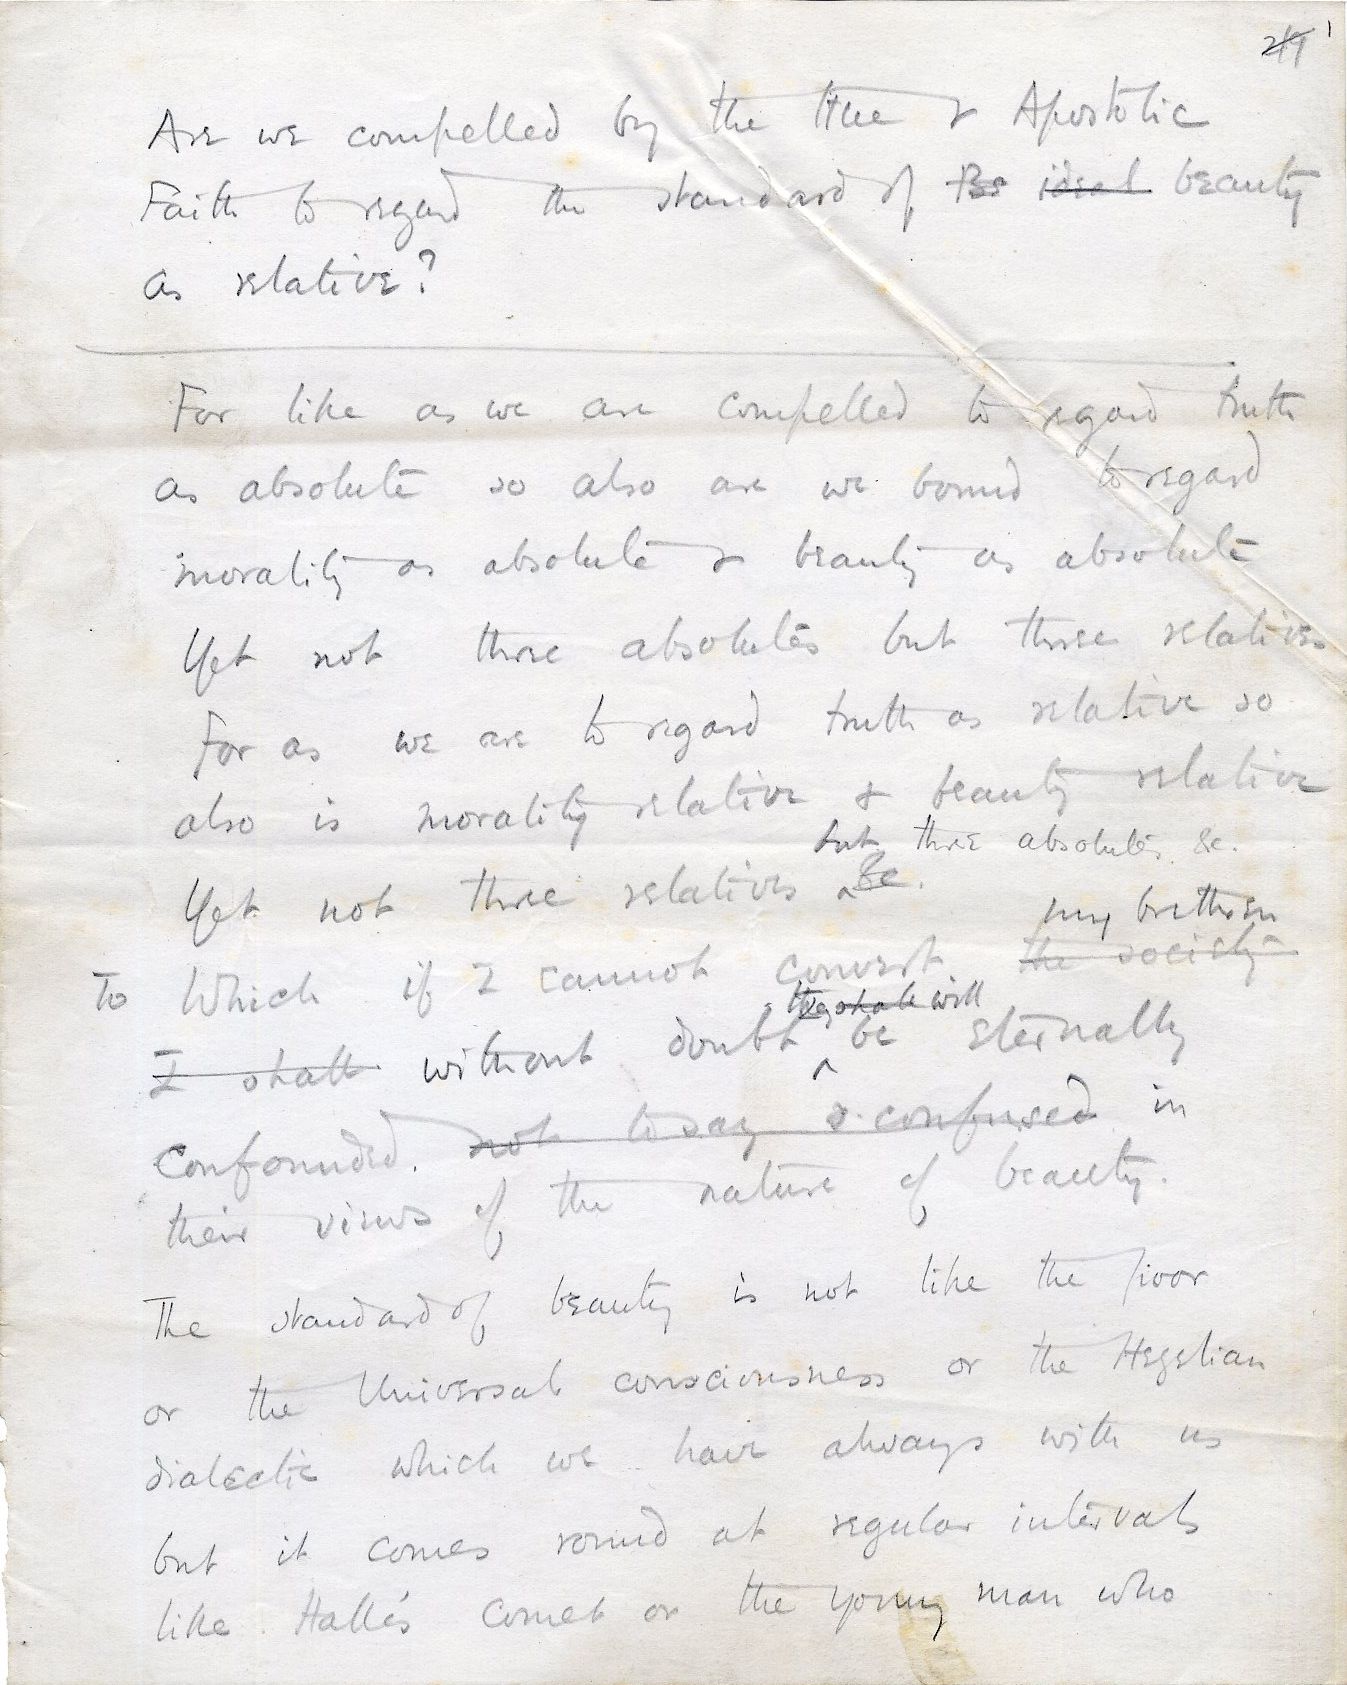 Are we compelled by the true & Apostolic
Faith to regard the standard of ideal beauty
as relative?
For like as we are compelled to regard truth
as absolute so also are we bound to regard
morality as absolute & beauty as absolute
Yet not three absolutes but three relatives
For as we are to regard truth as relative so
also is morality relative & beauty relative
but three absolutes &c.
Yet not three relatives &c.
my brethren
To Which if I cannot convert the society
they shall will
I shall without doubt be eternally
confounded. not to say & confused in
their views of the nature of beauty.
The standard of beauty is not like the poor
or the Universal consciousness or the Hegelian
dialectic which we have always with us
but it comes round at regular intervals
like Halle's comet or the young man who